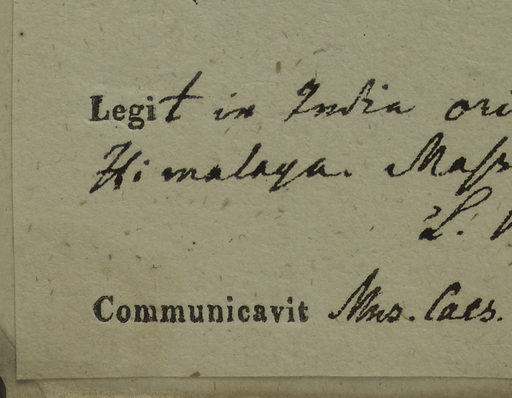 Legit in India ori
Himalaya. Mass
L.
Communicavit Mus. Caes.